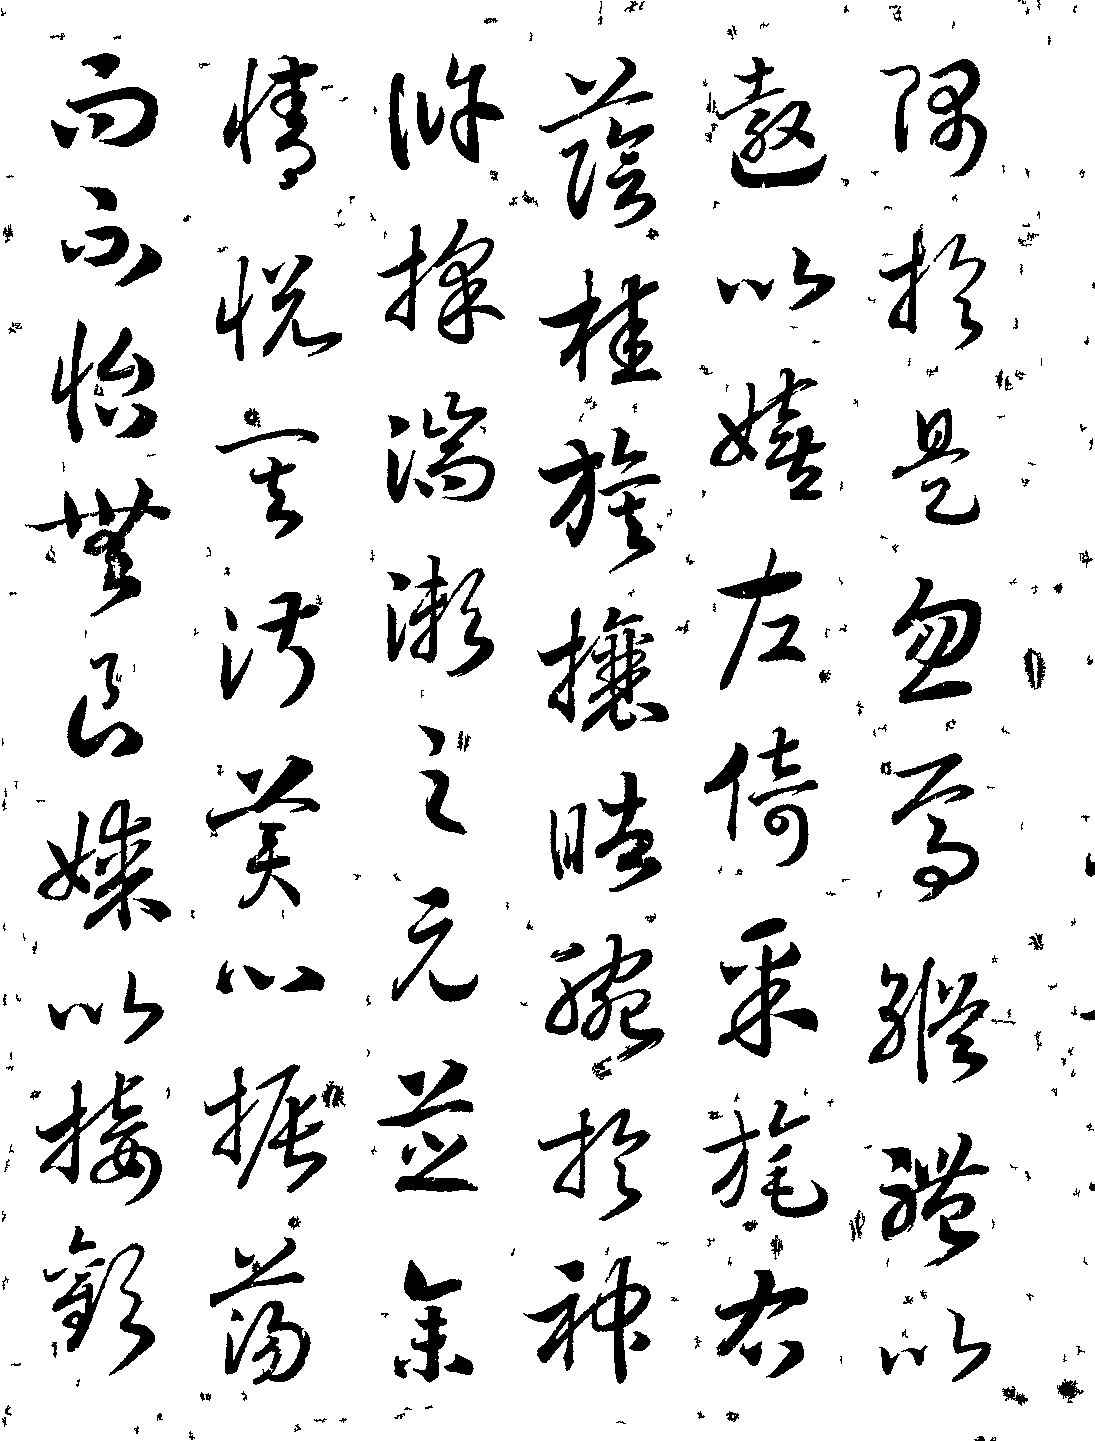 隅於是忽焉縱體以
遨以嬉左倚采旄右
蔭桂旗攘皓腕於神
滸採湍瀨之玄芝余
情悅其淑美心振蕩
而不怡無良媒以接歡